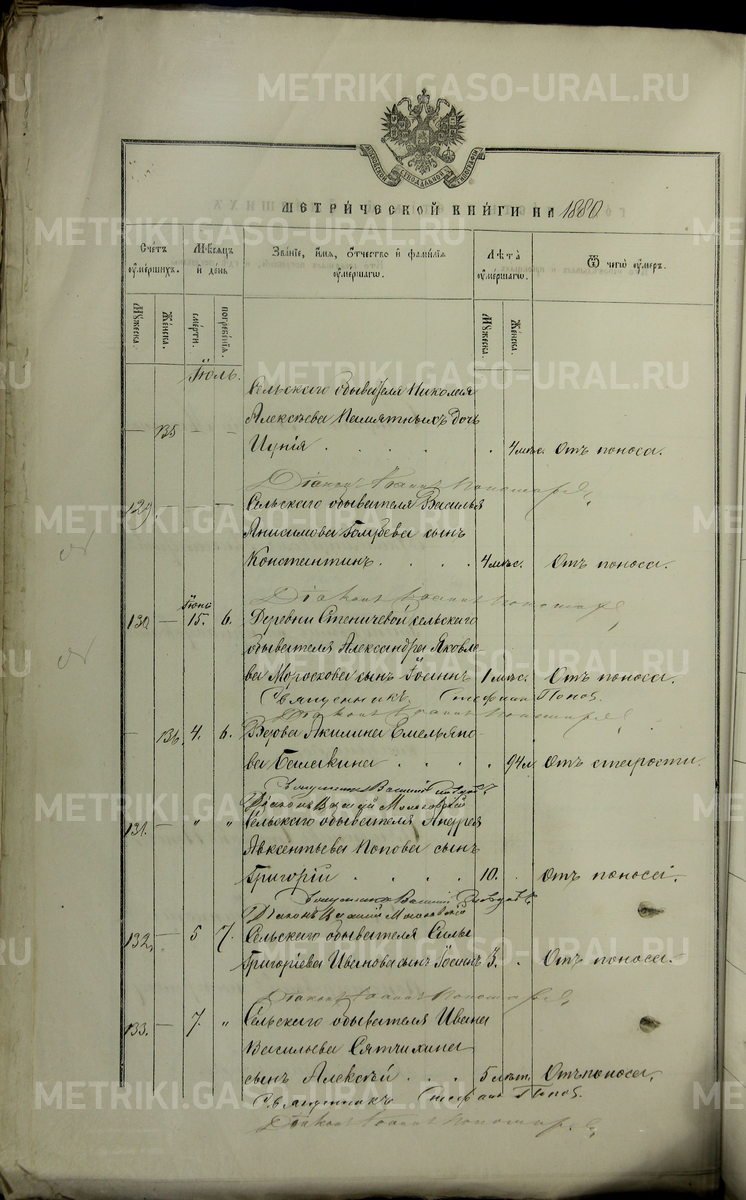 METRIKI.GASO-URAL.RU
МОСКОВСКОЙ СѴНОДАЛЬНОЙ ТИПОГРАФІИ
МЕТРИ́ЧЕСКОЙ КНИ́ГИ НА 1880.
Счетъ ᲂу҆ме́ршихъ.
Мѣсяцъ и҆ де́нь
Зва́нїе, и҆́мя, ѻ҆́тчество и҆ фами́лїя ᲂу҆ме́ршагѡ.
Лѣта̀ ᲂу҆ме́ршагѡ.
Ѿ чегѡ̀ ᲂу҆́меръ.
Мꙋ́жеска.
Же́нска.
сме́рти.
погребе́нїѧ.
Мꙋ́жеска.
Же́нска.
Іюль.
Сельскаго обывателя Николая
Алексѣева Памятныхъ дочь
— 135 — — . . . . . 4 мѣс. Отъ поноса.
Діаконъ Іоаннъ Пономаревъ
129. — — — Сельскаго обывателя Василья
Анисимова Голубева сынъ
Константинъ . . . . 4 мѣс. Отъ поноса.
Діаконъ Іоаннъ Пономаревъ
Іюнь
130 — 15. 6. Деревни сельскаго
обывателя Александра Яковле
ва сынъ Іосифъ 1 мѣс. Отъ поноса.
Священникъ Стефанъ Поповъ.
Діаконъ Іоаннъ Пономаревъ
— 136 4. 6. Вдова Акилина Емельяно
ва . . . . . 94 л. Отъ старости.
Священникъ Василій
Діаконъ
131. — " " Сельскаго обывателя Андрея
Авксентьева Попова сынъ
Григорій . . . . 10. . Отъ поноса.
Священникъ Василій
Діаконъ
132. — 5 7. Сельскаго обывателя Силы
Григорьева Иванова сынъ Іосифъ 3. . Отъ поноса.
Діаконъ Іоаннъ Пономаревъ
133. — 7. " Сельскаго обывателя Ивана
Васильева Сятчихина
сынъ Алексѣй . . . 5 лѣт. Отъ поноса.
Священникъ Стефанъ Поповъ.
Діаконъ Іоаннъ Пономаревъ